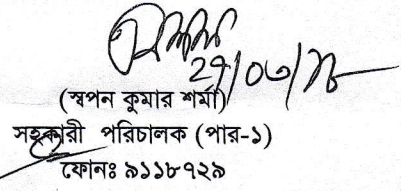 (স্বপন কুমার শর্মা)
সহকারী পরিচালক (পার-১)
ফোনঃ ৯১১৮৭২৯